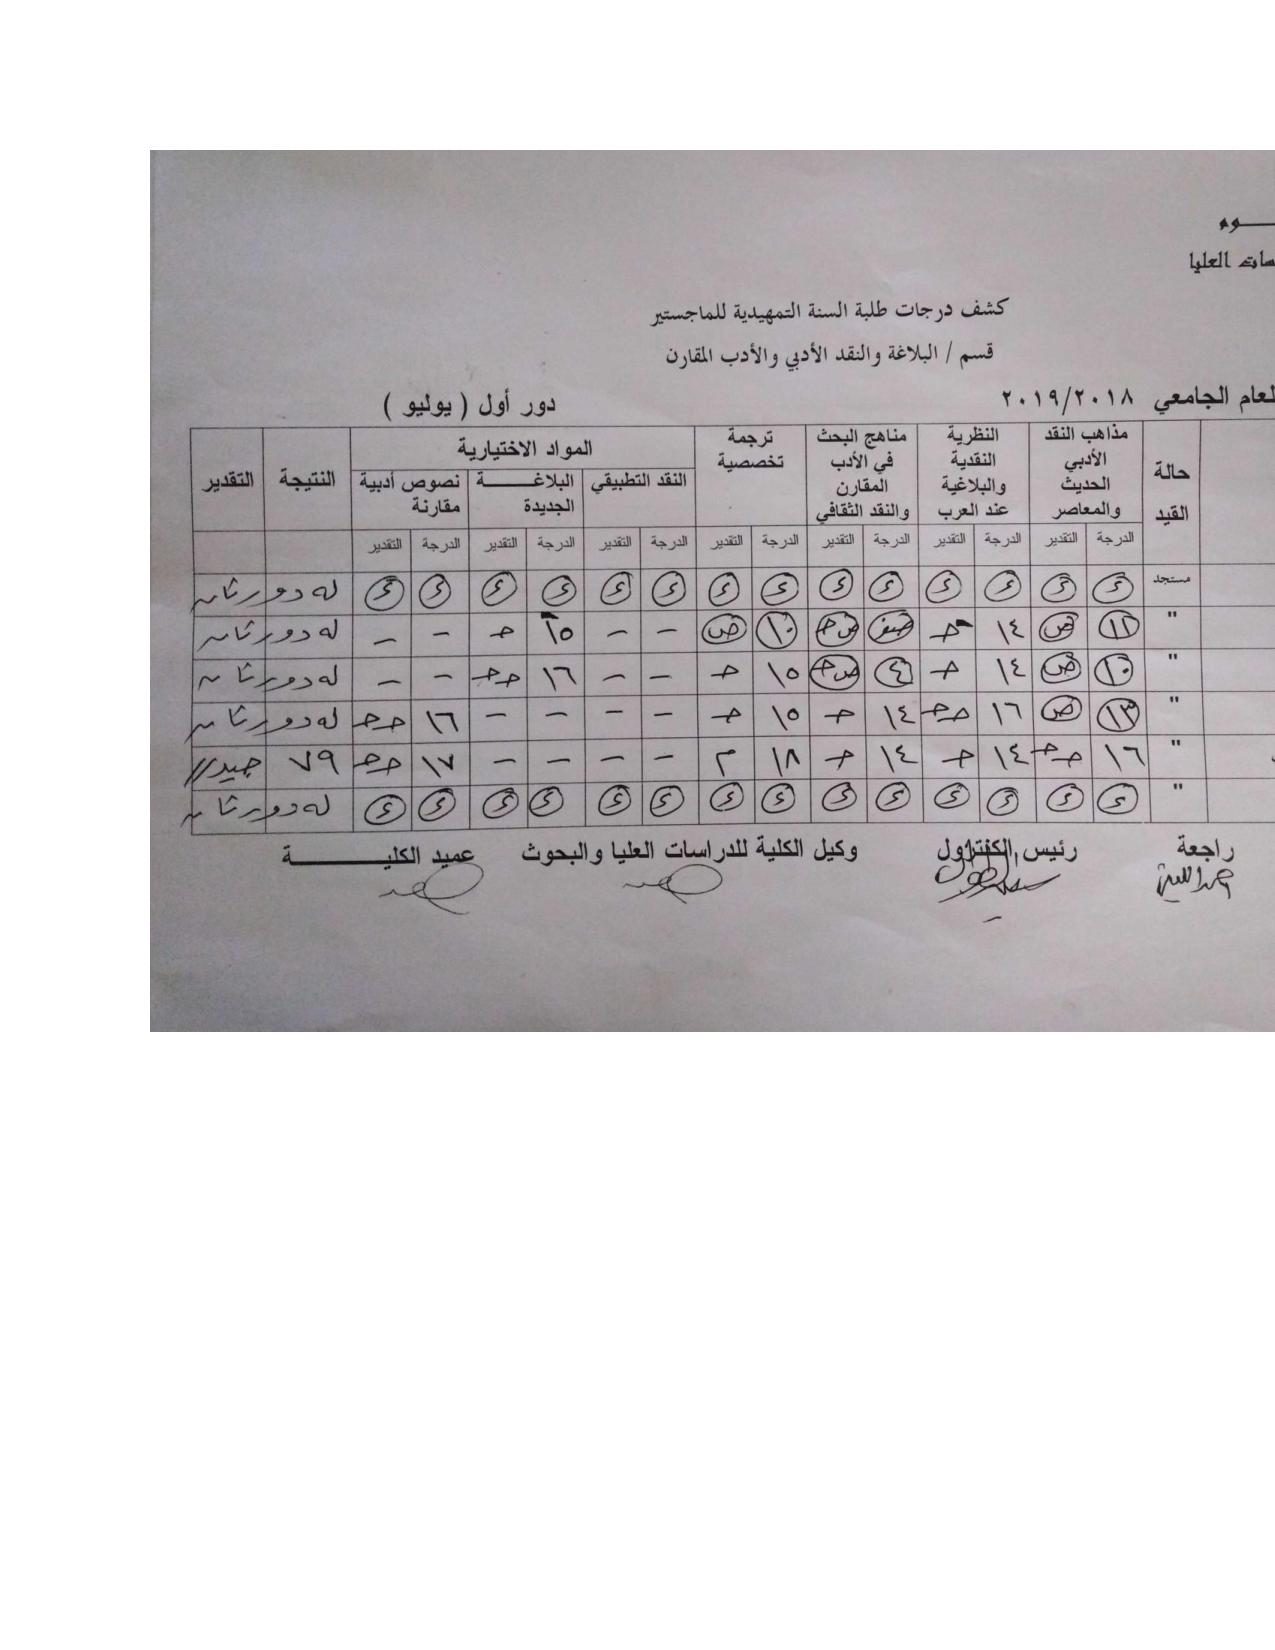 سات العليا
كشف درجات طلبة السنة التمهيدية للماجستير
قسم / البلاغة والنقد الأدبي والأدب المقارن
لعام الجامعي ٢٠١٩/٢٠١٨ دور أول ( يوليو )
حالة القيد مذاهب النقد الأدبي الحديث والمعاصر النظرية النقدية والبلاغية عند العرب مناهج البحث في الأدب المقارن والنقد الثقافي ترجمة تخصصية المواد الاختيارية النقد التطبيقي البلاغة الجديدة نصوص أدبية مقارنة النتيجة التقدير
الدرجة التقدير الدرجة التقدير الدرجة التقدير الدرجة التقدير الدرجة التقدير الدرجة التقدير الدرجة التقدير
مستجد غ غ غ غ غ غ غ غ غ غ غ غ غ غ له دور ثان
" ١٢ ض ١٤ حـ صفر ض حـ ١٠ ض – – ١٥ حـ – – له دور ثان
" ١٠ ض ١٤ حـ ٤ ض حـ ١٥ حـ – – ١٦ حـ حـ – – له دور ثان
" ١٣ ض ١٦ حـ حـ ١٤ حـ ١٥ حـ – – – – ١٦ حـ حـ له دور ثان
" ١٦ حـ حـ ١٤ حـ ١٤ حـ ١٨ م – – – – ١٧ حـ حـ ٧٩ جيد//
" غ غ غ غ غ غ غ غ غ غ غ غ غ غ له دور ثان
راجعة رئيس الكنترول وكيل الكلية للدراسات العليا والبحوث عميد الكليـــة